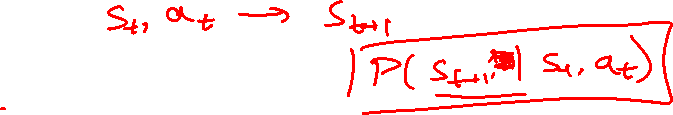 s_t, a_t → s_{t+1}
P( s_{t+1} | s_t, a_t )